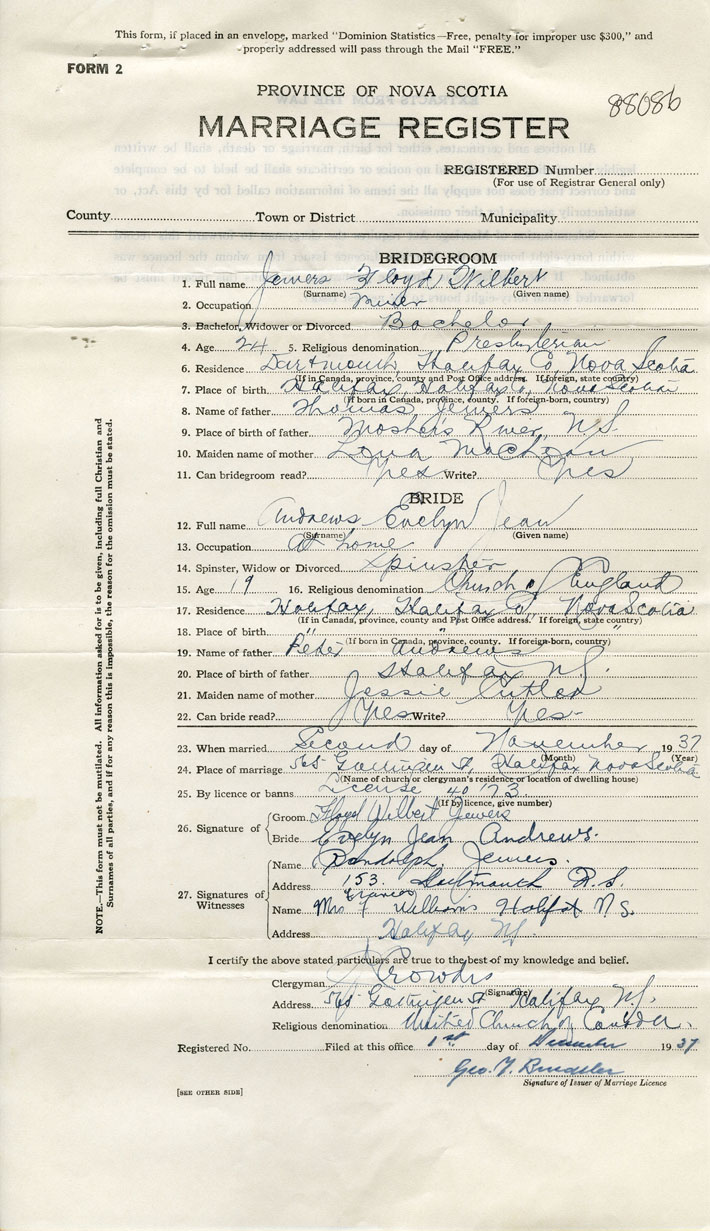 This form, if placed in an envelope, marked "Dominion Statistics—Free, penalty for improper use $300," and
properly addressed will pass through the Mail "FREE."
FORM 2
PROVINCE OF NOVA SCOTIA
88086
MARRIAGE REGISTER
REGISTERED Number
(For use of Registrar General only)
County Town or District Municipality
BRIDEGROOM
1. Full name Jewers Floyd Wilbert
(Surname) (Given name)
2. Occupation Miner
3. Bachelor, Widower or Divorced Bachelor
4. Age 24 5. Religious denomination Presbyterian
6. Residence Dartmouth, Halifax Co, Nova Scotia
(If in Canada, province, county and Post Office address. If foreign, state country)
7. Place of birth Halifax, Halifax Co, Nova Scotia
(If born in Canada, province, county. If foreign-born, country)
8. Name of father Thomas Jewers
9. Place of birth of father Mosher's River, N.S.
10. Maiden name of mother
11. Can bridegroom read? Yes Write? Yes
BRIDE
12. Full name Andrews Evelyn Jean
(Surname) (Given name)
13. Occupation At home
14. Spinster, Widow or Divorced Spinster
15. Age 19 16. Religious denomination Church of England
17. Residence Halifax, Halifax Co, Nova Scotia
(If in Canada, province, county and Post Office address. If foreign, state country)
18. Place of birth " " "
(If born in Canada, province, county. If foreign-born, country)
19. Name of father Peter Andrews
20. Place of birth of father Halifax NS.
21. Maiden name of mother Jessie Cutler
22. Can bride read? Yes Write? Yes
23. When married Second day of November 1937
(Month) (Year)
24. Place of marriage 565 Gottingen St, Halifax Nova Scotia
(Name of church or clergyman's residence or location of dwelling house)
25. By licence or banns License 40173
(If by licence, give number)
26. Signature of Groom Floyd Wilbert Jewers
Bride Evelyn Jean Andrews.
27. Signatures of Witnesses
Name Randolph Jewers.
Address 153. Dartmouth N.S.
Name Mrs Francis Williams Halifax N.S.
Address Halifax NS.
I certify the above stated particulars are true to the best of my knowledge and belief.
Clergyman
(Signature)
Address 565 Gottingen St Halifax NS.
Religious denomination United Church of Canada.
Registered No. Filed at this office 1st day of December 1937
Geo. 
Signature of Issuer of Marriage Licence
[SEE OTHER SIDE]
NOTE.—This form must not be mutilated. All information asked for is to be given, including full Christian and
Surnames of all parties, and if for any reason this is impossible, the reason for the omission must be stated.